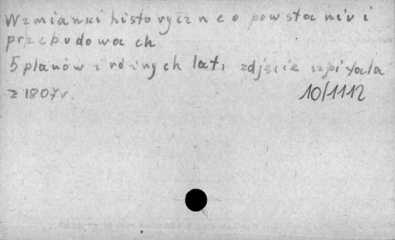 Wzmianki historyczne o powstaniu i
przebudowach
5 planów z różnych lat, zdjęcie szpitala
z 1807r.
10/1112